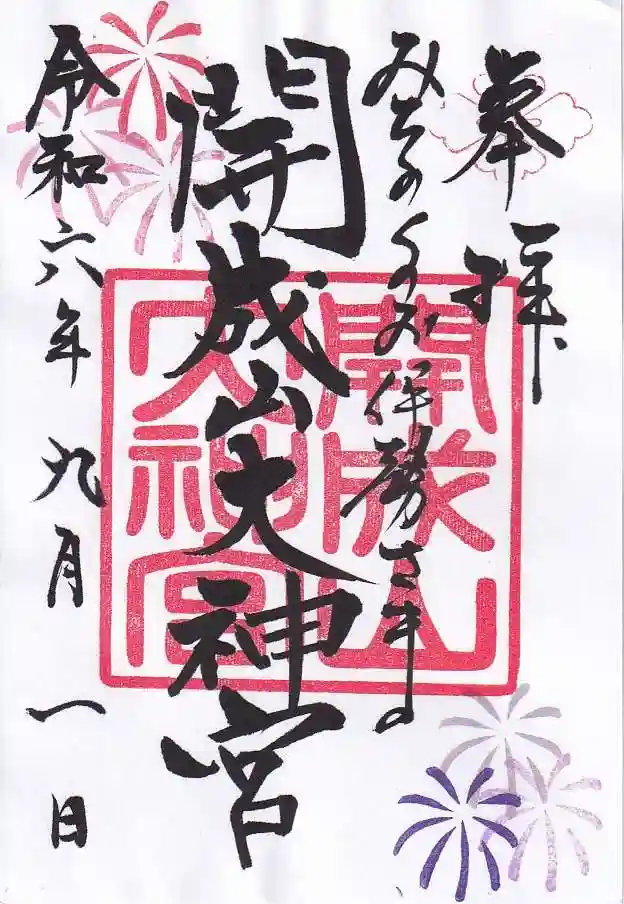 奉拝
みちのくのお伊勢さま
開成山大神宮
令和六年九月一日
開成山
大神宮